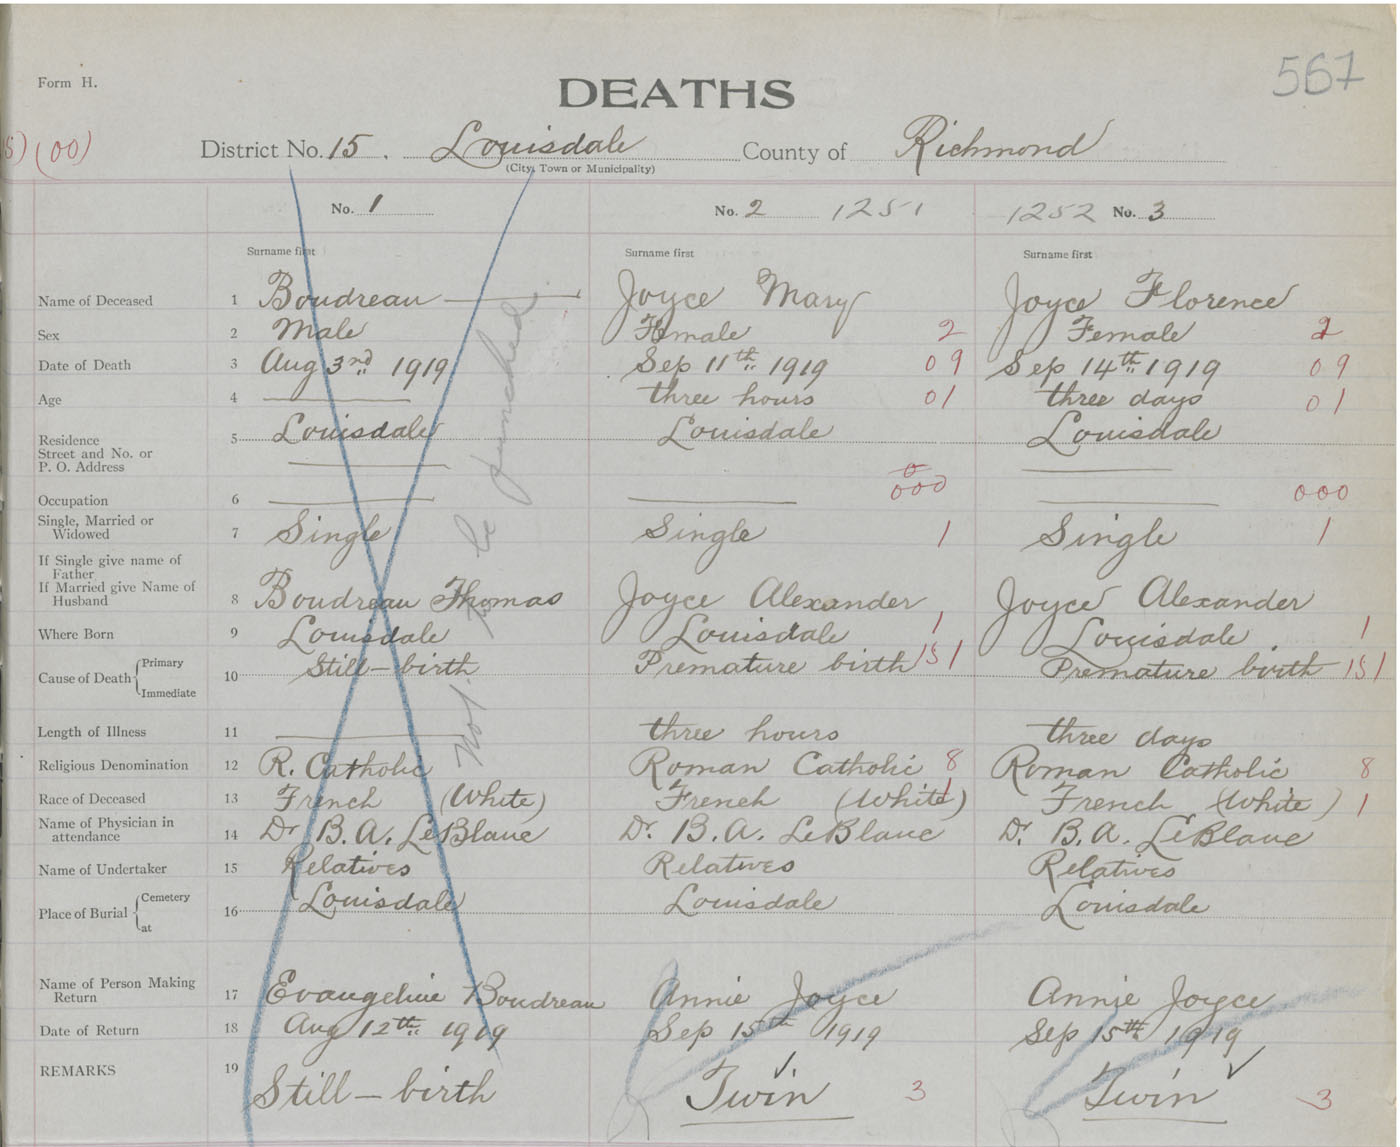 Form H.
567
DEATHS
(00)
District No. 15. Louisdale County of Richmond
(City, Town or Municipality)
No. 1 No. 2 1251 1252 No. 3
Surname first Surname first Surname first
Name of Deceased 1 Boudreau — Joyce Mary Joyce Florence
Sex 2 Male Female 2 Female 2
Date of Death 3 Aug 3rd 1919 Sep 11th 1919 09 Sep 14th 1919 09
Age 4 — three hours 01 three days 01
Residence
Street and No. or
P. O. Address
5 Louisdale Louisdale Louisdale
0
Occupation 6 — — 000 — 000
Single, Married or
Widowed
7 Single Single 1 Single 1
If Single give name of
Father
If Married give Name of
Husband
8 Boudreau Thomas Joyce Alexander Joyce Alexander
Where Born 9 Louisdale Louisdale 1 Louisdale 1
Cause of Death { Primary
Immediate
10 Still-birth Premature birth 151 Premature birth 151
Length of Illness 11 — three hours three days
Religious Denomination 12 R. Catholic Roman Catholic 8 Roman Catholic 8
Race of Deceased 13 French (White) French (White) 1 French (White) 1
Name of Physician in
attendance
14 Dr. B. A. LeBlanc Dr. B. A. LeBlanc Dr. B. A. LeBlanc
Name of Undertaker 15 Relatives Relatives Relatives
Place of Burial { Cemetery
at
16 Louisdale Louisdale Louisdale
Name of Person Making
Return
17 Evangeline Boudreau Annie Joyce Annie Joyce
Date of Return 18 Aug 12th 1919 Sep 15th 1919 Sep 15th 1919
REMARKS 19 Still-birth Twin 3 Twin 3
Not to be punched